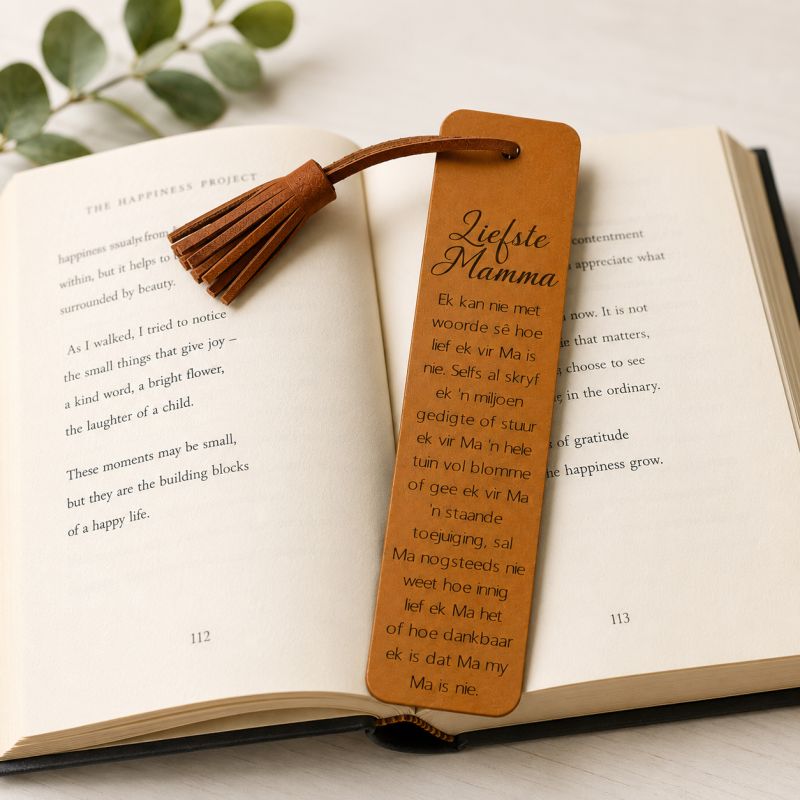 THE HAPPINESS PROJECT
happiness
within, but it helps to
surrounded by beauty.
As I walked, I tried to notice
the small things that give joy –
a kind word, a bright flower,
the laughter of a child.
These moments may be small,
but they are the building blocks
of a happy life.
112
Liefste
Mamma
Ek kan nie met
woorde sê hoe
lief ek vir Ma is
nie. Selfs al skryf
ek 'n miljoen
gedigte of stuur
ek vir Ma 'n hele
tuin vol blomme
of gee ek vir Ma
'n staande
toejuiging, sal
Ma nogsteeds nie
weet hoe innig
lief ek Ma het
of hoe dankbaar
ek is dat Ma my
Ma is nie.
contentment
appreciate what
now. It is not
that matters,
choose to see
in the ordinary.
of gratitude
happiness grow.
113